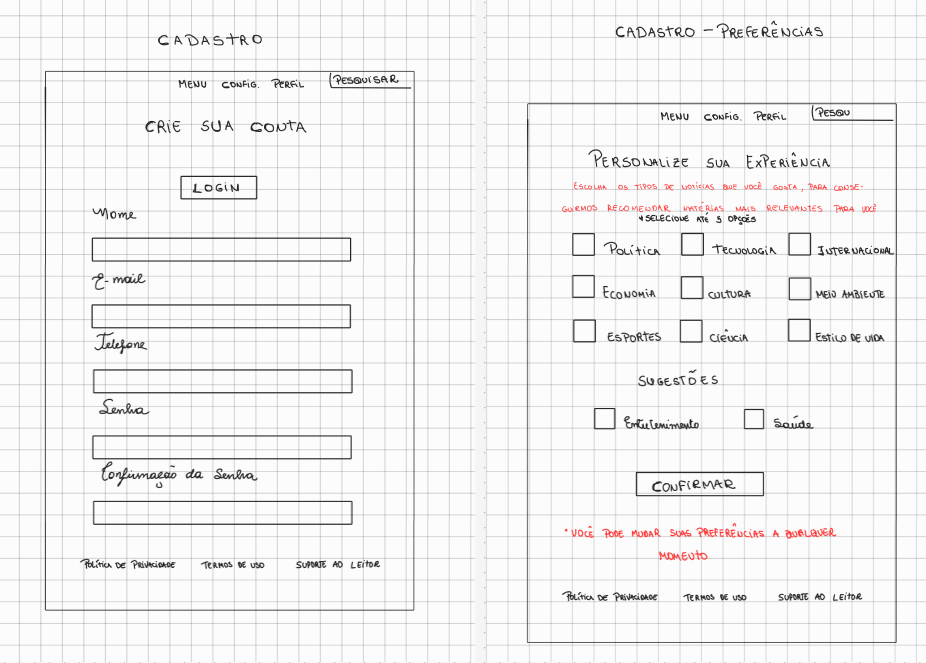 CADASTRO
MENU CONFIG. PERFIL PESQUISAR
CRIE SUA CONTA
LOGIN
Nome
E-mail
Telefone
Senha
Confirmação da Senha
POLÍTICA DE PRIVACIDADE TERMOS DE USO SUPORTE AO LEITOR
CADASTRO - PREFERÊNCIAS
MENU CONFIG. PERFIL PESQU
PERSONALIZE SUA EXPERIÊNCIA
ESCOLHA OS TIPOS DE NOTÍCIAS QUE VOCÊ GOSTA, PARA CONSE-
GUIRMOS RECOMENDAR MATÉRIAS MAIS RELEVANTES PARA VOCÊ
*SELECIONE ATÉ 5 OPÇÕES
POLÍTICA TECNOLOGIA INTERNACIONAL
ECONOMIA CULTURA MEIO AMBIENTE
ESPORTES CIÊNCIA ESTILO DE VIDA
SUGESTÕES
Entretenimento Saúde
CONFIRMAR
*VOCÊ PODE MUDAR SUAS PREFERÊNCIAS A QUALQUER
MOMENTO
POLÍTICA DE PRIVACIDADE TERMOS DE USO SUPORTE AO LEITOR